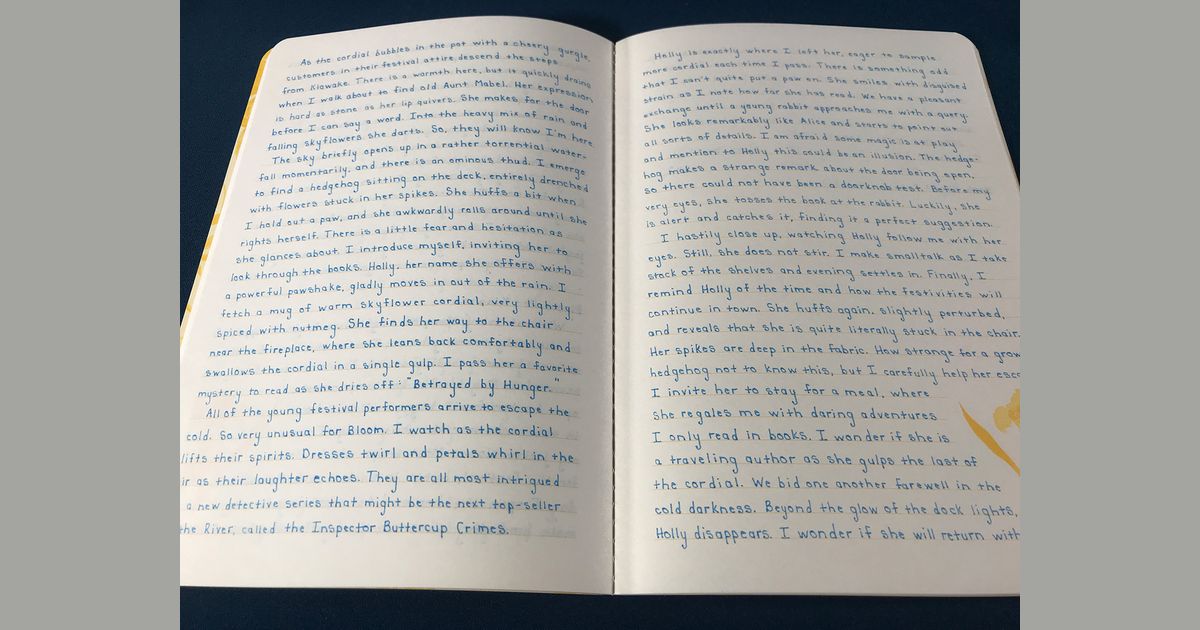 As the cordial bubbles in the pot with a cheery gurgle,
customers in their festival attire descend the steps
from Klawake. There is a warmth here, but it quickly drains
when I walk about to find old Aunt Mabel. Her expression
is hard as stone as her lip quivers. She makes for the door
before I can say a word. Into the heavy mix of rain and
falling skyflowers she darts. So, they will know I'm here
The sky briefly opens up in a rather torrential water-
fall momentarily, and there is an ominous thud. I emerge
to find a hedgehog sitting on the deck, entirely drenched
with flowers stuck in her spikes. She huffs a bit when
I hold out a paw, and she awkwardly rolls around until she
rights herself. There is a little fear and hesitation as
she glances about. I introduce myself, inviting her to
look through the books. Holly, her name she offers with
a powerful pawshake, gladly moves in out of the rain. I
fetch a mug of warm skyflower cordial, very lightly
spiced with nutmeg. She finds her way to the chair
near the fireplace, where she leans back comfortably and
swallows the cordial in a single gulp. I pass her a favorite
mystery to read as she dries off: "Betrayed by Hunger."
All of the young festival performers arrive to escape the
cold. So very unusual for Bloom. I watch as the cordial
lifts their spirits. Dresses twirl and petals whirl in the
ir as their laughter echoes. They are all most intrigued
a new detective series that might be the next top-seller
the River, called the Inspector Buttercup Crimes.
Holly is exactly where I left her, eager to sample
more cordial each time I pass. There is something odd
that I can't quite put a paw on. She smiles with disguised
strain as I note how far she has read. We have a pleasant
exchange until a young rabbit approaches me with a query.
She looks remarkably like Alice and starts to point out
all sorts of details. I am afraid some magic is at play
and mention to Holly this could be an illusion. The hedge-
hog makes a strange remark about the door being open,
so there could not have been a doorknob test. Before my
very eyes, she tosses the book at the rabbit. Luckily, she
is alert and catches it, finding it a perfect suggestion.
I hastily close up, watching Holly follow me with her
eyes. Still, she does not stir. I make smalltalk as I take
stock of the shelves and evening settles in. Finally, I
remind Holly of the time and how the festivities will
continue in town. She huffs again, slightly perturbed,
and reveals that she is quite literally stuck in the chair.
Her spikes are deep in the fabric. How strange for a grow
hedgehog not to know this, but I carefully help her esc
I invite her to stay for a meal, where
she regales me with daring adventures
I only read in books. I wonder if she is
a traveling author as she gulps the last of
the cordial. We bid one another farewell in the
cold darkness. Beyond the glow of the dock lights,
Holly disappears. I wonder if she will return with